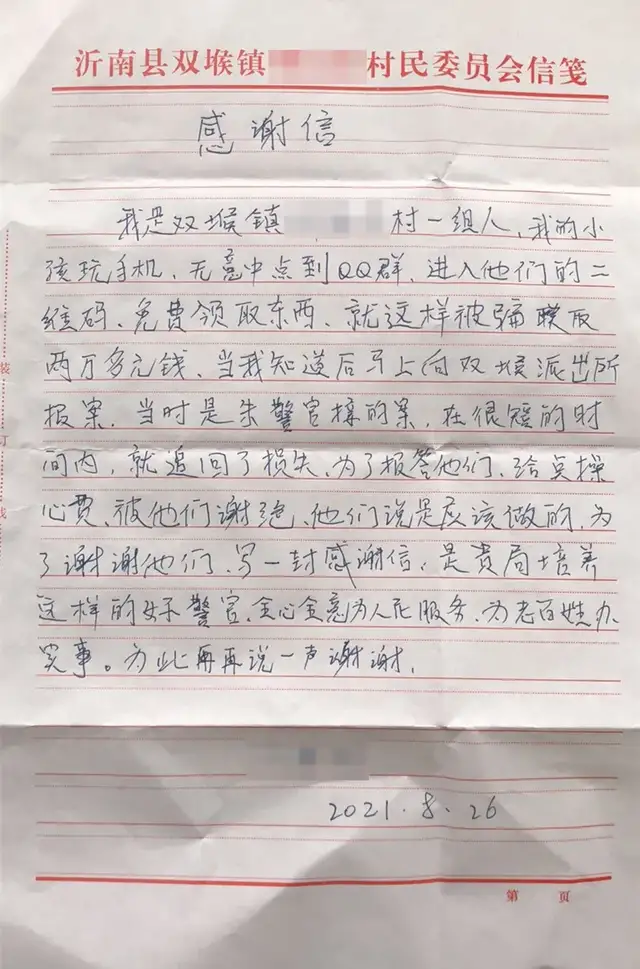 沂南县双堠镇 村民委员会信笺
感谢信
我是双堠镇 村一组人,我的小
孩玩手机、无意中点到QQ群、进入他们的二
维码、免费领取东西、就这样被骗取
两万多元钱、当我知道后马上向双堠派出所
报案、当时是朱警官接的案、在很短的时
间内,就追回了损失、为了报答他们、给点操
心费、被他们谢绝、他们说是应该做的、为
了谢谢他们、写一封感谢信、是贵局培养
这样的好警官、全心全意为人民服务、为老百姓办
实事。为此再再说一声谢谢.
2021.8.26
装
订
线
第 页